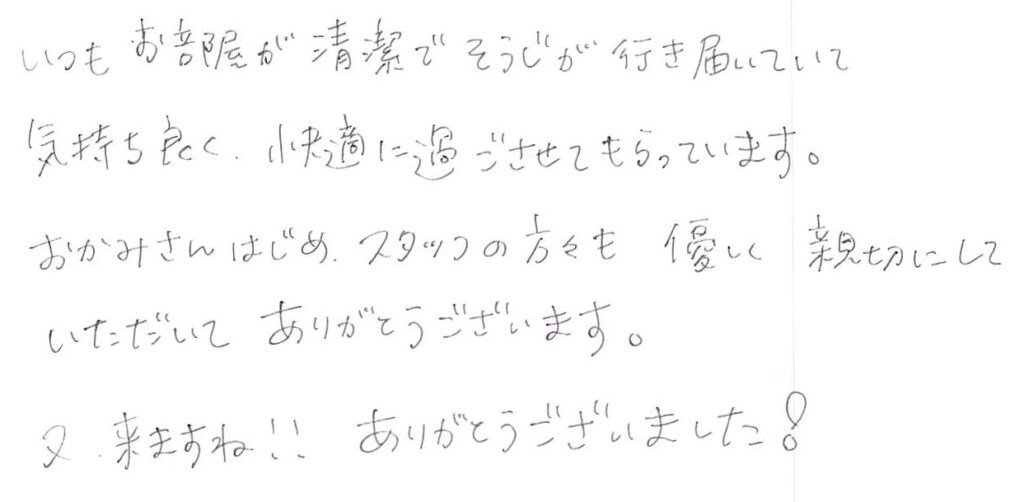 いつも お部屋が 清潔で そうじが 行き届いていて
気持ち良く、快適に過ごさせてもらっています。
おかみさんはじめ、スタッフの方々も 優しく 親切にして
いただいて ありがとうございます。
又、来ますね!! ありがとうございました!